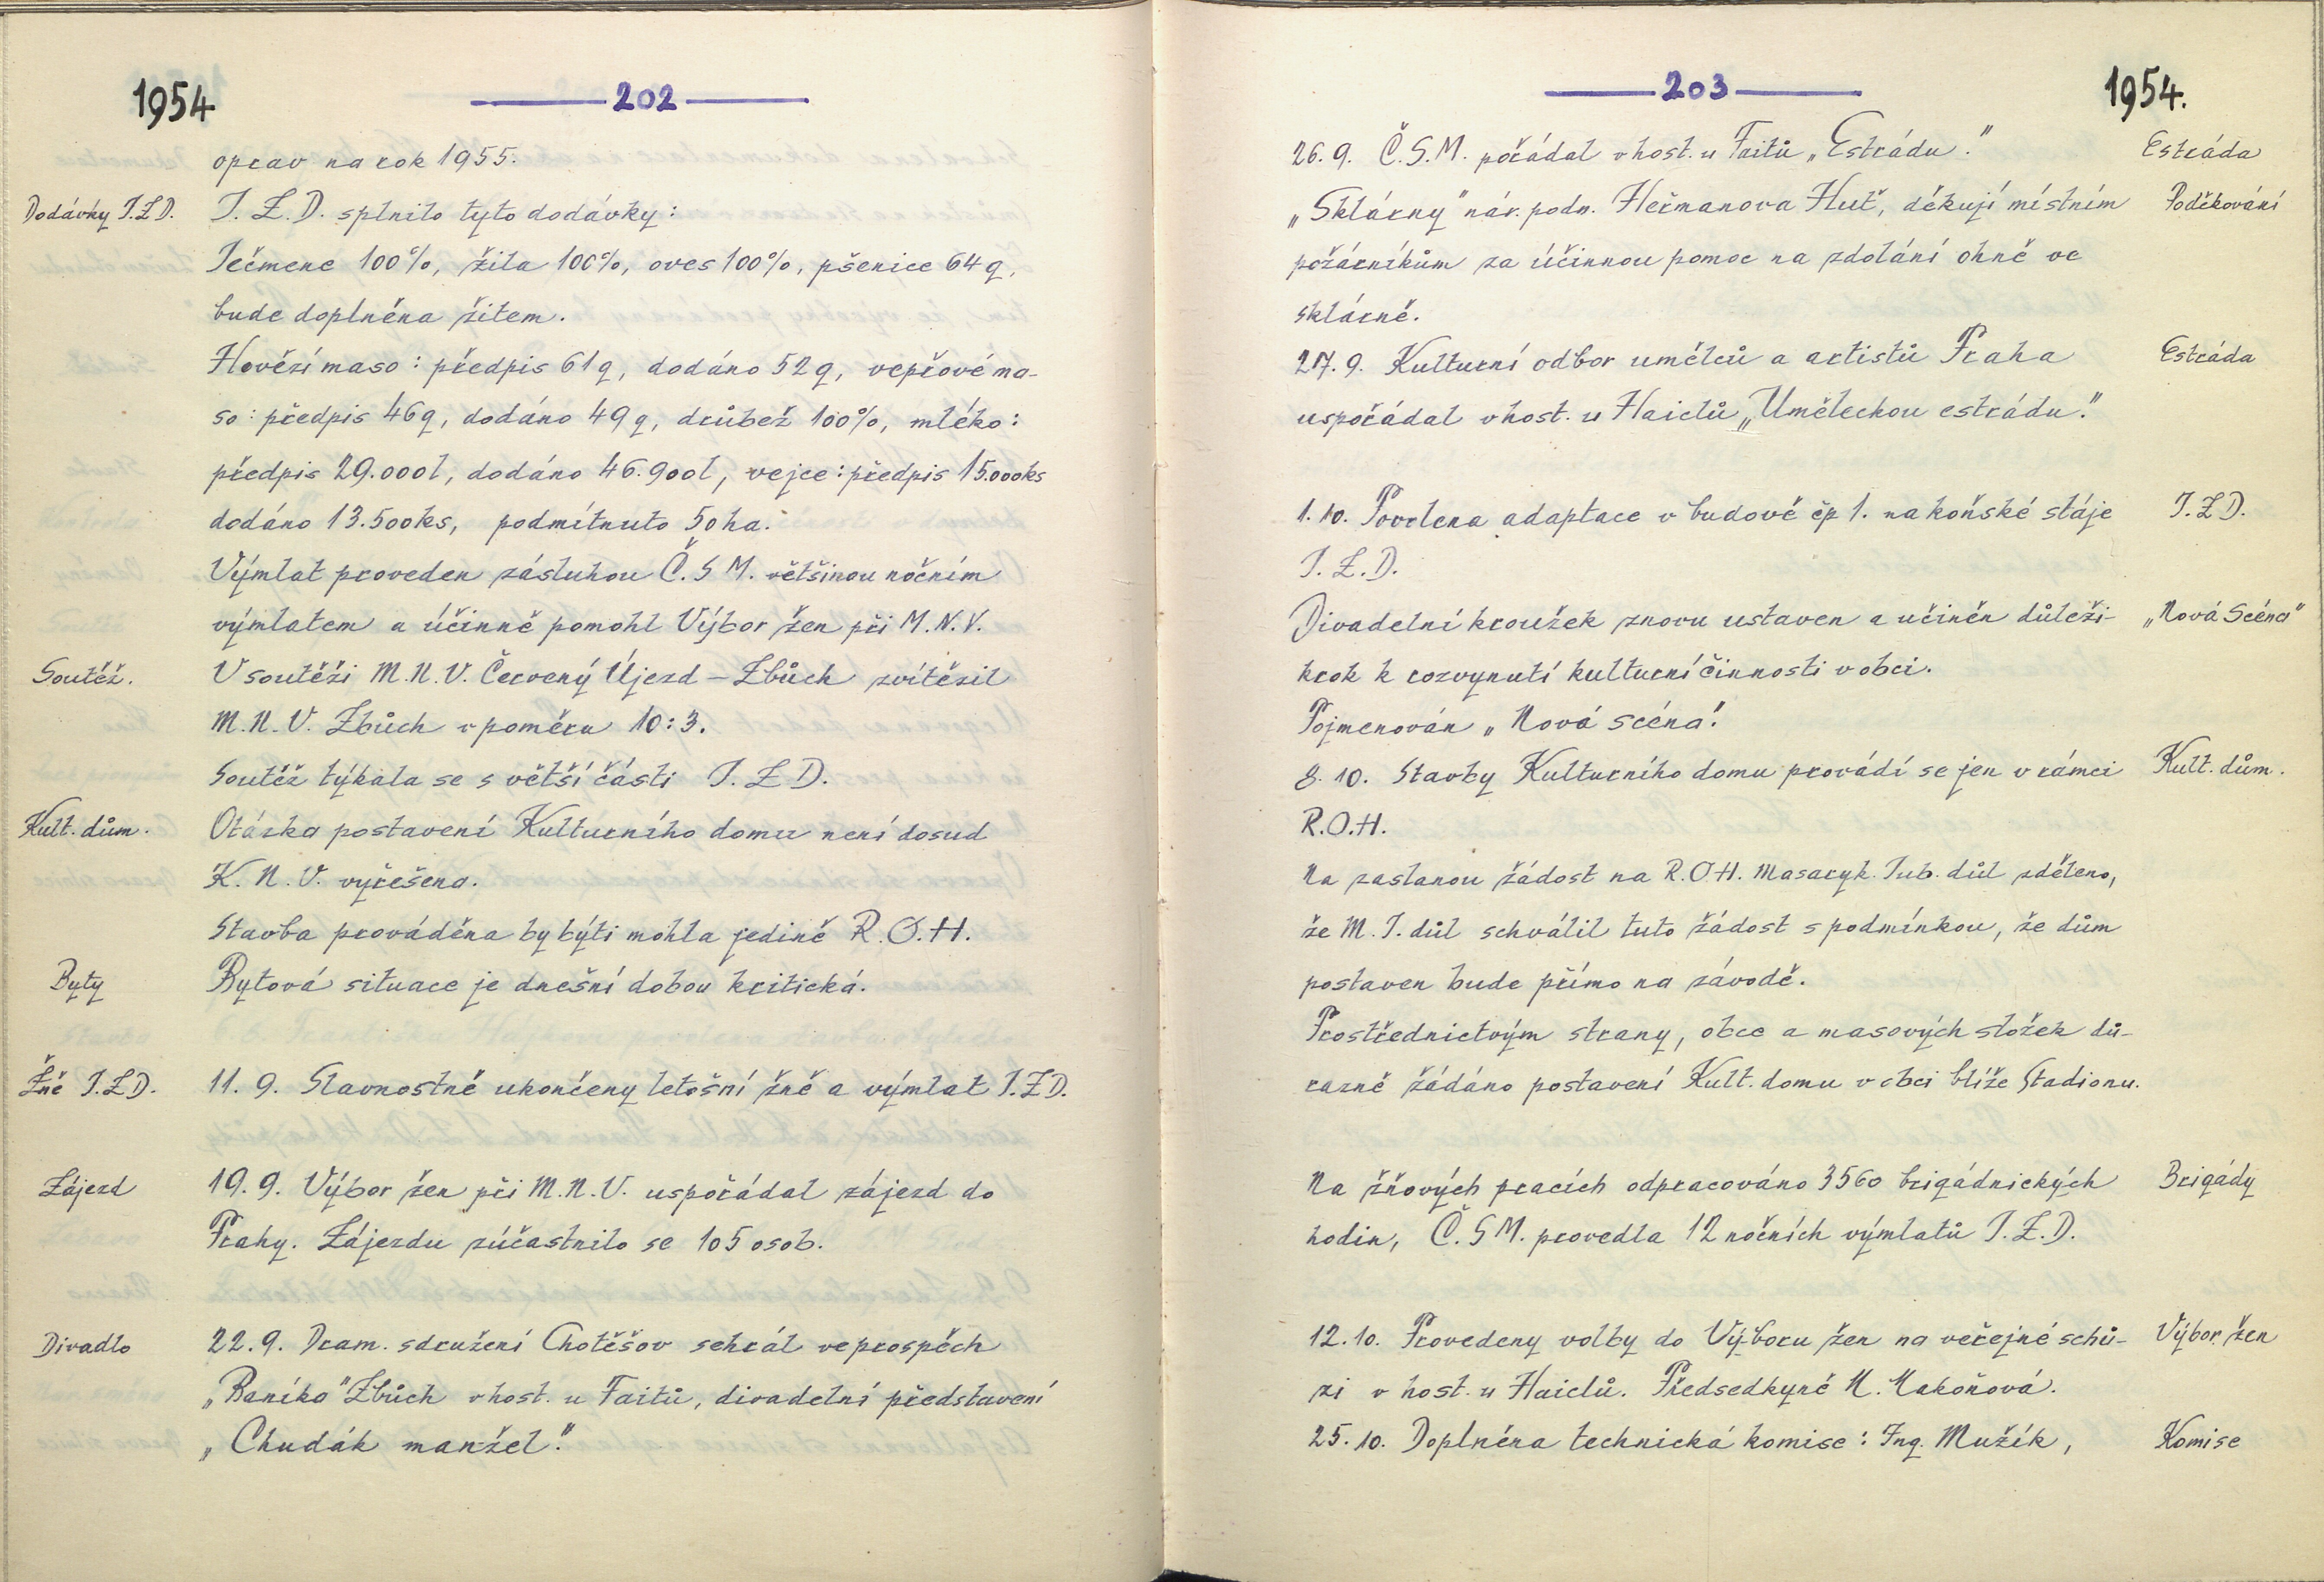 1954
202
oprav na rok 1955.
Dodávky J.Z.D. J.Z.D. splnilo tyto dodávky:
Ječmene 100%, žita 100%, oves 100%, pšenice 64 q,
bude doplněna žitem.
Hovězí maso: předpis 61 q, dodáno 52 q, vepřové ma-
so: předpis 46 q, dodáno 49 q, drůbež 100%, mléko:
předpis 29.000 l, dodáno 46.900 l, vejce: předpis 15.000 ks
dodáno 13.500 ks, podmítnuto 50 ha.
Výmlat proveden zásluhou Č.S.M. většinou nočním
výmlatem a účinně pomohl Výbor žen při M.N.V.
Soutěž. V soutěži M.N.V. Červený Újezd – Zbůch zvítězil
M.N.V. Zbůch v poměru 10:3.
Soutěž týkala se s větší části J.Z.D.
Kult. dům. Otázka postavení Kulturního domu není dosud
K.N.V. vyřešena.
Stavba prováděna by býti mohla jedině R.O.H.
Byty Bytová situace je dnešní dobou kritická.
Žně J.Z.D. 11. 9. Slavnostně ukončeny letošní žně a výmlat J.Z.D.
Zájezd 19. 9. Výbor žen při M.N.V. uspořádal zájezd do
Prahy. Zájezdu zúčastnilo se 105 osob.
Divadlo 22. 9. Dram. sdružení Chotěšov sehrál ve prospěch
„Baníka" Zbůch v host. u Faitů, divadelní představení
„Chudák manžel."
203
1954.
26. 9. Č.S.M. pořádal v host. u Faitů „Estrádu." Estráda
„Sklárny" nár. podn. Heřmanova Huť, děkují místním Poděkování
požárníkům za účinnou pomoc na zdolání ohně ve
sklárně.
27. 9. Kulturní odbor umělců a artistů Praha Estráda
uspořádal v host. u Haidlů „Uměleckou estrádu."
1. 10. Povolena adaptace v budově čp 1. na koňské stáje J.Z.D.
J.Z.D.
Divadelní kroužek znovu ustaven a učiněn důleži- „Nová Scéna"
krok k rozvynutí kulturní činnosti v obci.
Pojmenován „Nová scéna".
8. 10. Stavby Kulturního domu provádí se jen v rámci Kult. dům.
R.O.H.
Na zaslanou žádost na R.O.H. Masaryk. Jub. důl zděleno,
že M.J. důl schválil tuto žádost s podmínkou, že dům
postaven bude přímo na závodě.
Prostřednictvým strany, obce a masových složek dů-
razně žádáno postavení Kult. domu v obci blíže Stadionu.
Na žňových pracích odpracováno 3560 brigádnických Brigády
hodin, Č.S.M. provedla 12 nočních výmlatů J.Z.D.
12. 10. Provedeny volby do Výboru žen na veřejné schů- Výbor žen
zi v host. u Haidlů. Předsedkyně M. Makoňová.
25. 10. Doplněna technická komise: Ing. Mužík, Komise